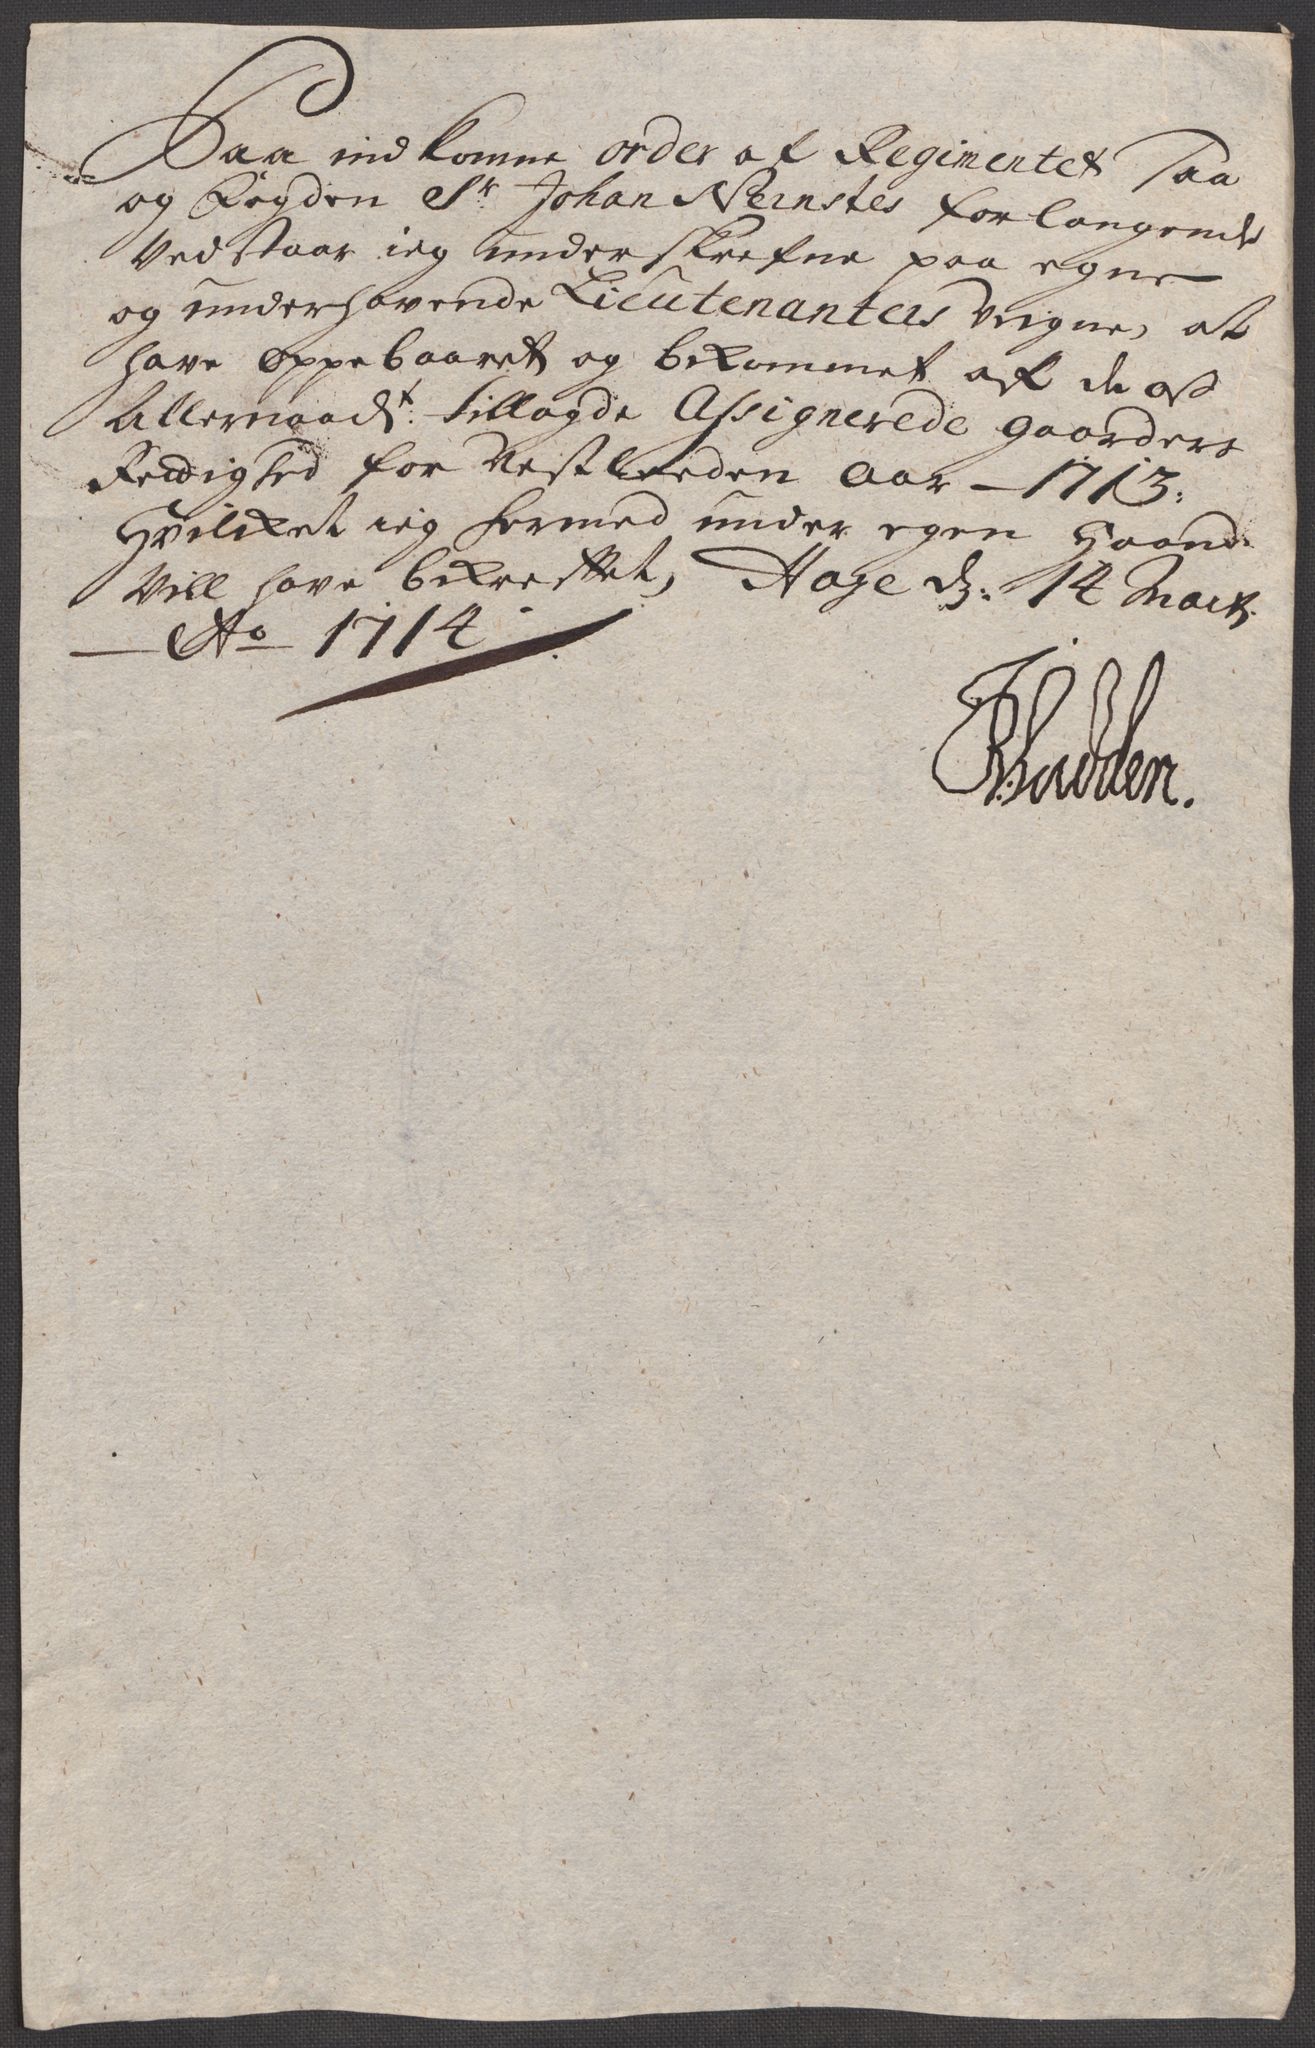 Paa indkomne order af Regimentet Saa
og Fogden Sr Johan Wernstes forlangende
Vedstaar ieg underskrefne paa egne
og underhavende Lieutenanters veigne, at
have oppebaaret og bekommet af de os
Allernaadt. tillagde Assignerede gaarders
Rettighed for Nestleeden Aar - 1713:
Hvilket ieg hermed under egen Haand
Vill have bekreftet, Hage d: 14 Marti
Ao 1714